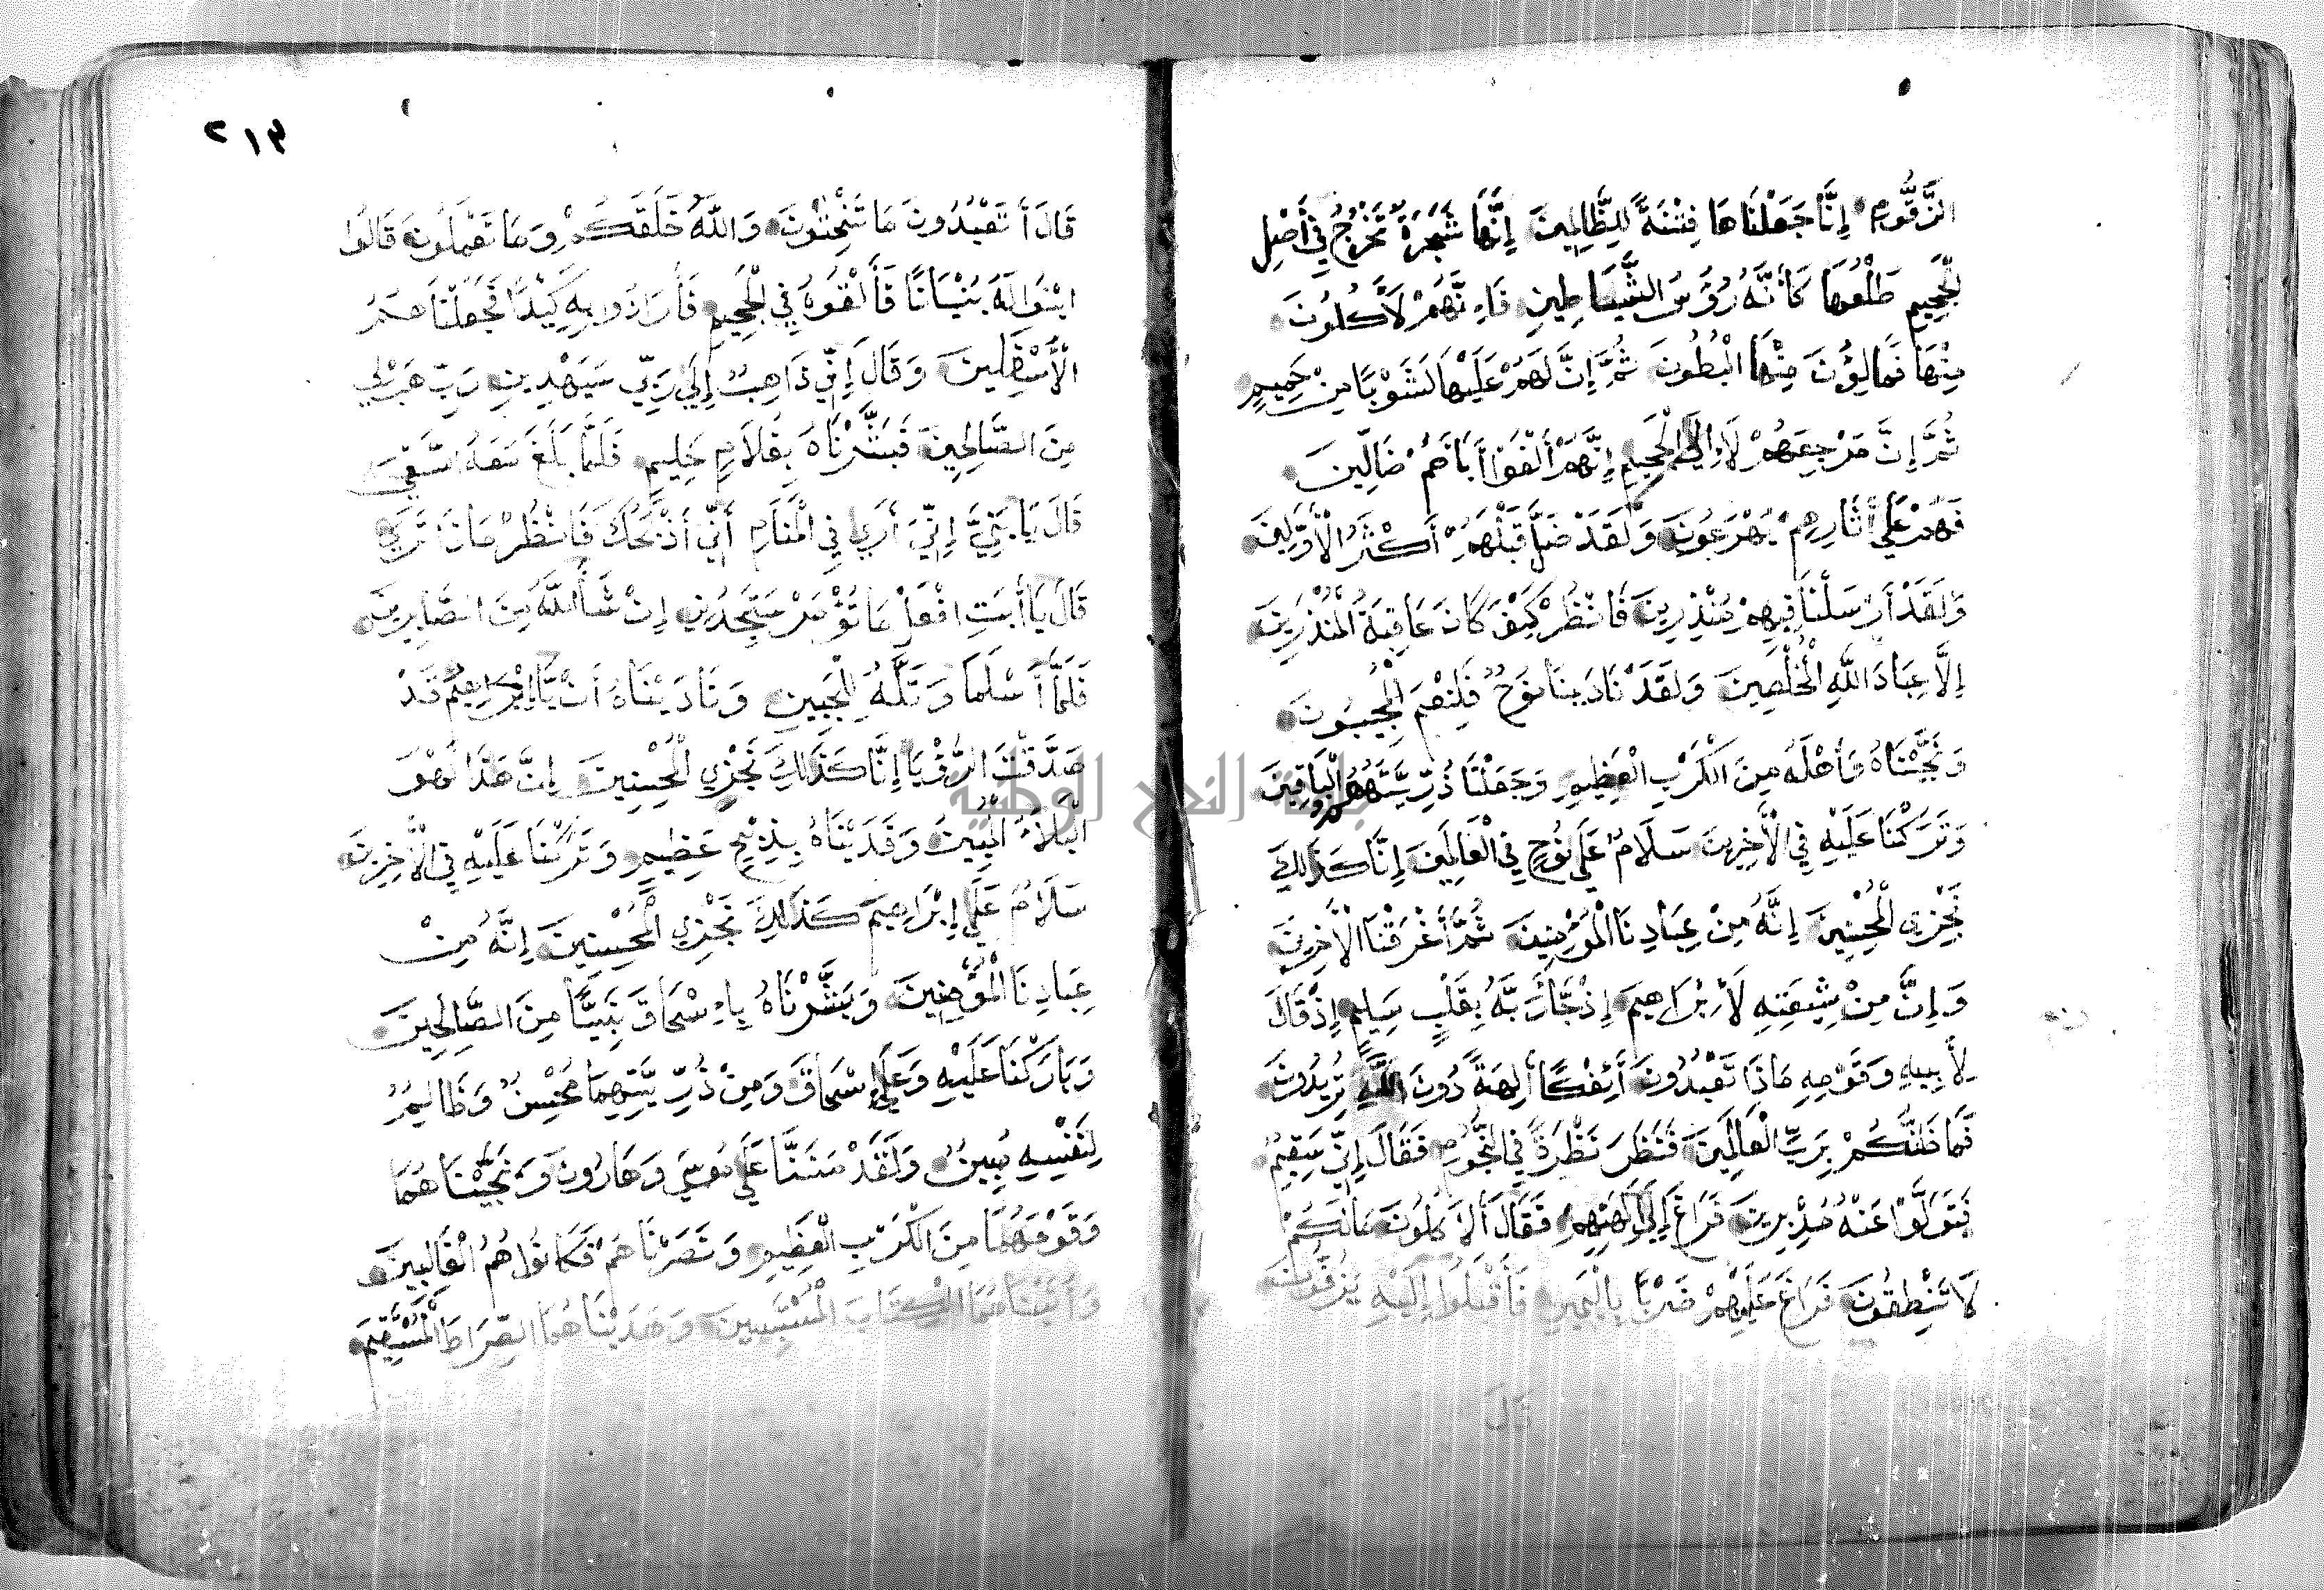 الزَّقُّومِ إِنَّا جَعَلْنَاهَا فِتْنَةً لِلظَّالِمِينَ إِنَّهَا شَجَرَةٌ تَخْرُجُ فِي أَصْلِ
الْجَحِيمِ طَلْعُهَا كَأَنَّهُ رُؤُسُ الشَّيَاطِينِ فَإِنَّهُمْ لَأَكِلُونَ
مِنْهَا فَمَالِؤُنَ مِنْهَا الْبُطُونَ ثُمَّ إِنَّ لَهُمْ عَلَيْهَا لَشَوْبًا مِنْ حَمِيمٍ
ثُمَّ إِنَّ مَرْجِعَهُمْ لَإِلَى الْجَحِيمِ إِنَّهُمْ أَلْفَوْا أَبَاءَهُمْ ضَالِّينَ
فَهُمْ عَلَى أَثَارِهِمْ يُهْرَعُونَ وَلَقَدْ ضَلَّ قَبْلَهُمْ أَكْثَرُ الْأَوَّلِينَ
وَلَقَدْ أَرْسَلْنَا فِيهِمْ مُنْذِرِينَ فَانْظُرْ كَيْفَ كَانَ عَاقِبَةُ الْمُنْذَرِينَ
إِلَّا عِبَادَ اللَّهِ الْمُخْلَصِينَ وَلَقَدْ نَادَينَا نُوحٌ فَلَنِعْمَ الْمُجِيبُونَ
وَنَجَّيْنَاهُ وَأَهْلَهُ مِنَ الْكَرْبِ الْعَظِيمِ وَجَعَلْنَا ذُرِّيَّتَهُ هُمُ الْبَاقِينَ
وَتَرَكْنَا عَلَيْهِ فِي الْأَخِرِينَ سَلَامٌ عَلَى نُوحٍ فِي الْعَالَمِينَ إِنَّا كَذَلِكَ
نَجْزِي الْمُحْسِنِينَ إِنَّهُ مِنْ عِبَادِنَا الْمُؤْمِنِينَ ثُمَّ أَغْرَقْنَا الْأَخَرِينَ
وَإِنَّ مِنْ شِيعَتِهِ لَإِبْرَاهِيمَ إِذْ جَاءَ رَبَّهُ بِقَلْبٍ سَلِيمٍ إِذْ قَالَ
لِأَبِيهِ وَقَوْمِهِ مَاذَا تَعْبُدُونَ أَئِفْكًا أَلِهَةً دُونَ اللَّهِ تُرِيدُونَ
فَمَا ظَنُّكُمْ بِرَبِّ الْعَالَمِينَ فَنَظَرَ نَظْرَةً فِي النُّجُومِ فَقَالَ إِنِّي سَقِيمٌ
فَتَوَلَّوْا عَنْهُ مُدْبِرِينَ فَرَاغَ إِلَى أَلِهَتِهِمْ فَقَالَ أَلَا تَأْكُلُونَ مَالَكُمْ
لَا تَنْطِقُونَ فَرَاغَ عَلَيْهِمْ ضَرْبًا بِالْيَمِينِ فَأَقْبَلُوا إِلَيْهِ يَزِفُّونَ
قَالَ
٢١٣
قَالَ أَتَعْبُدُونَ مَا تَنْحِتُونَ وَاللَّهُ خَلَقَكُمْ وَمَا تَعْمَلُونَ قَالُوا
ابْنُوا لَهُ بُنْيَانًا فَأَلْقُوهُ فِي الْجَحِيمِ فَأَرَادُوا بِهِ كَيْدًا فَجَعَلْنَاهُمُ
الْأَسْفَلِينَ وَقَالَ إِنِّي ذَاهِبٌ إِلَى رَبِّي سَيَهْدِينِ رَبِّ هَبْ لِي
مِنَ الصَّالِحِينَ فَبَشَّرْنَاهُ بِغُلَامٍ حَلِيمٍ فَلَمَّا بَلَغَ مَعَهُ السَّعْيَ
قَالَ يَا بُنَيَّ إِنِّي أَرَى فِي الْمَنَامِ أَنِّي أَذْبَحُكَ فَانْظُرْ مَاذَا تَرَى
قَالَ يَا أَبَتِ افْعَلْ مَا تُؤْمَرْ سَتَجِدُنِي إِنْ شَاءَ اللَّهُ مِنَ الصَّابِرِينَ
فَلَمَّا أَسْلَمَا وَتَلَّهُ لِلْجَبِينِ وَنَادَيْنَاهُ أَنْ يَا إِبْرَاهِيمُ قَدْ
صَدَّقْتَ الرُّؤْيَا إِنَّا كَذَلِكَ نَجْزِي الْمُحْسِنِينَ إِنَّ هَذَا لَهُوَ
الْبَلَاءُ الْمُبِينُ وَفَدَيْنَاهُ بِذِبْحٍ عَظِيمٍ وَتَرَكْنَا عَلَيْهِ فِي الْأَخِرِينَ
سَلَامٌ عَلَى إِبْرَاهِيمَ كَذَلِكَ نَجْزِي الْمُحْسِنِينَ إِنَّهُ مِنْ
عِبَادِنَا الْمُؤْمِنِينَ وَبَشَّرْنَاهُ بِإِسْحَاقَ نَبِيًّا مِنَ الصَّالِحِينَ
وَبَارَكْنَا عَلَيْهِ وَعَلَى إِسْحَاقَ وَمِنْ ذُرِّيَّتِهِمَا مُحْسِنٌ وَظَالِمٌ
لِنَفْسِهِ مُبِينٌ وَلَقَدْ مَنَنَّا عَلَى مُوسَى وَهَارُونَ وَنَجَّيْنَاهُمَا
وَقَوْمَهُمَا مِنَ الْكَرْبِ الْعَظِيمِ وَنَصَرْنَاهُمْ فَكَانُوا هُمُ الْغَالِبِينَ
وَأَتَيْنَاهُمَا الْكِتَابَ الْمُسْتَبِينَ وَهَدَيْنَاهُمَا الصِّرَاطَ الْمُسْتَقِيمَ